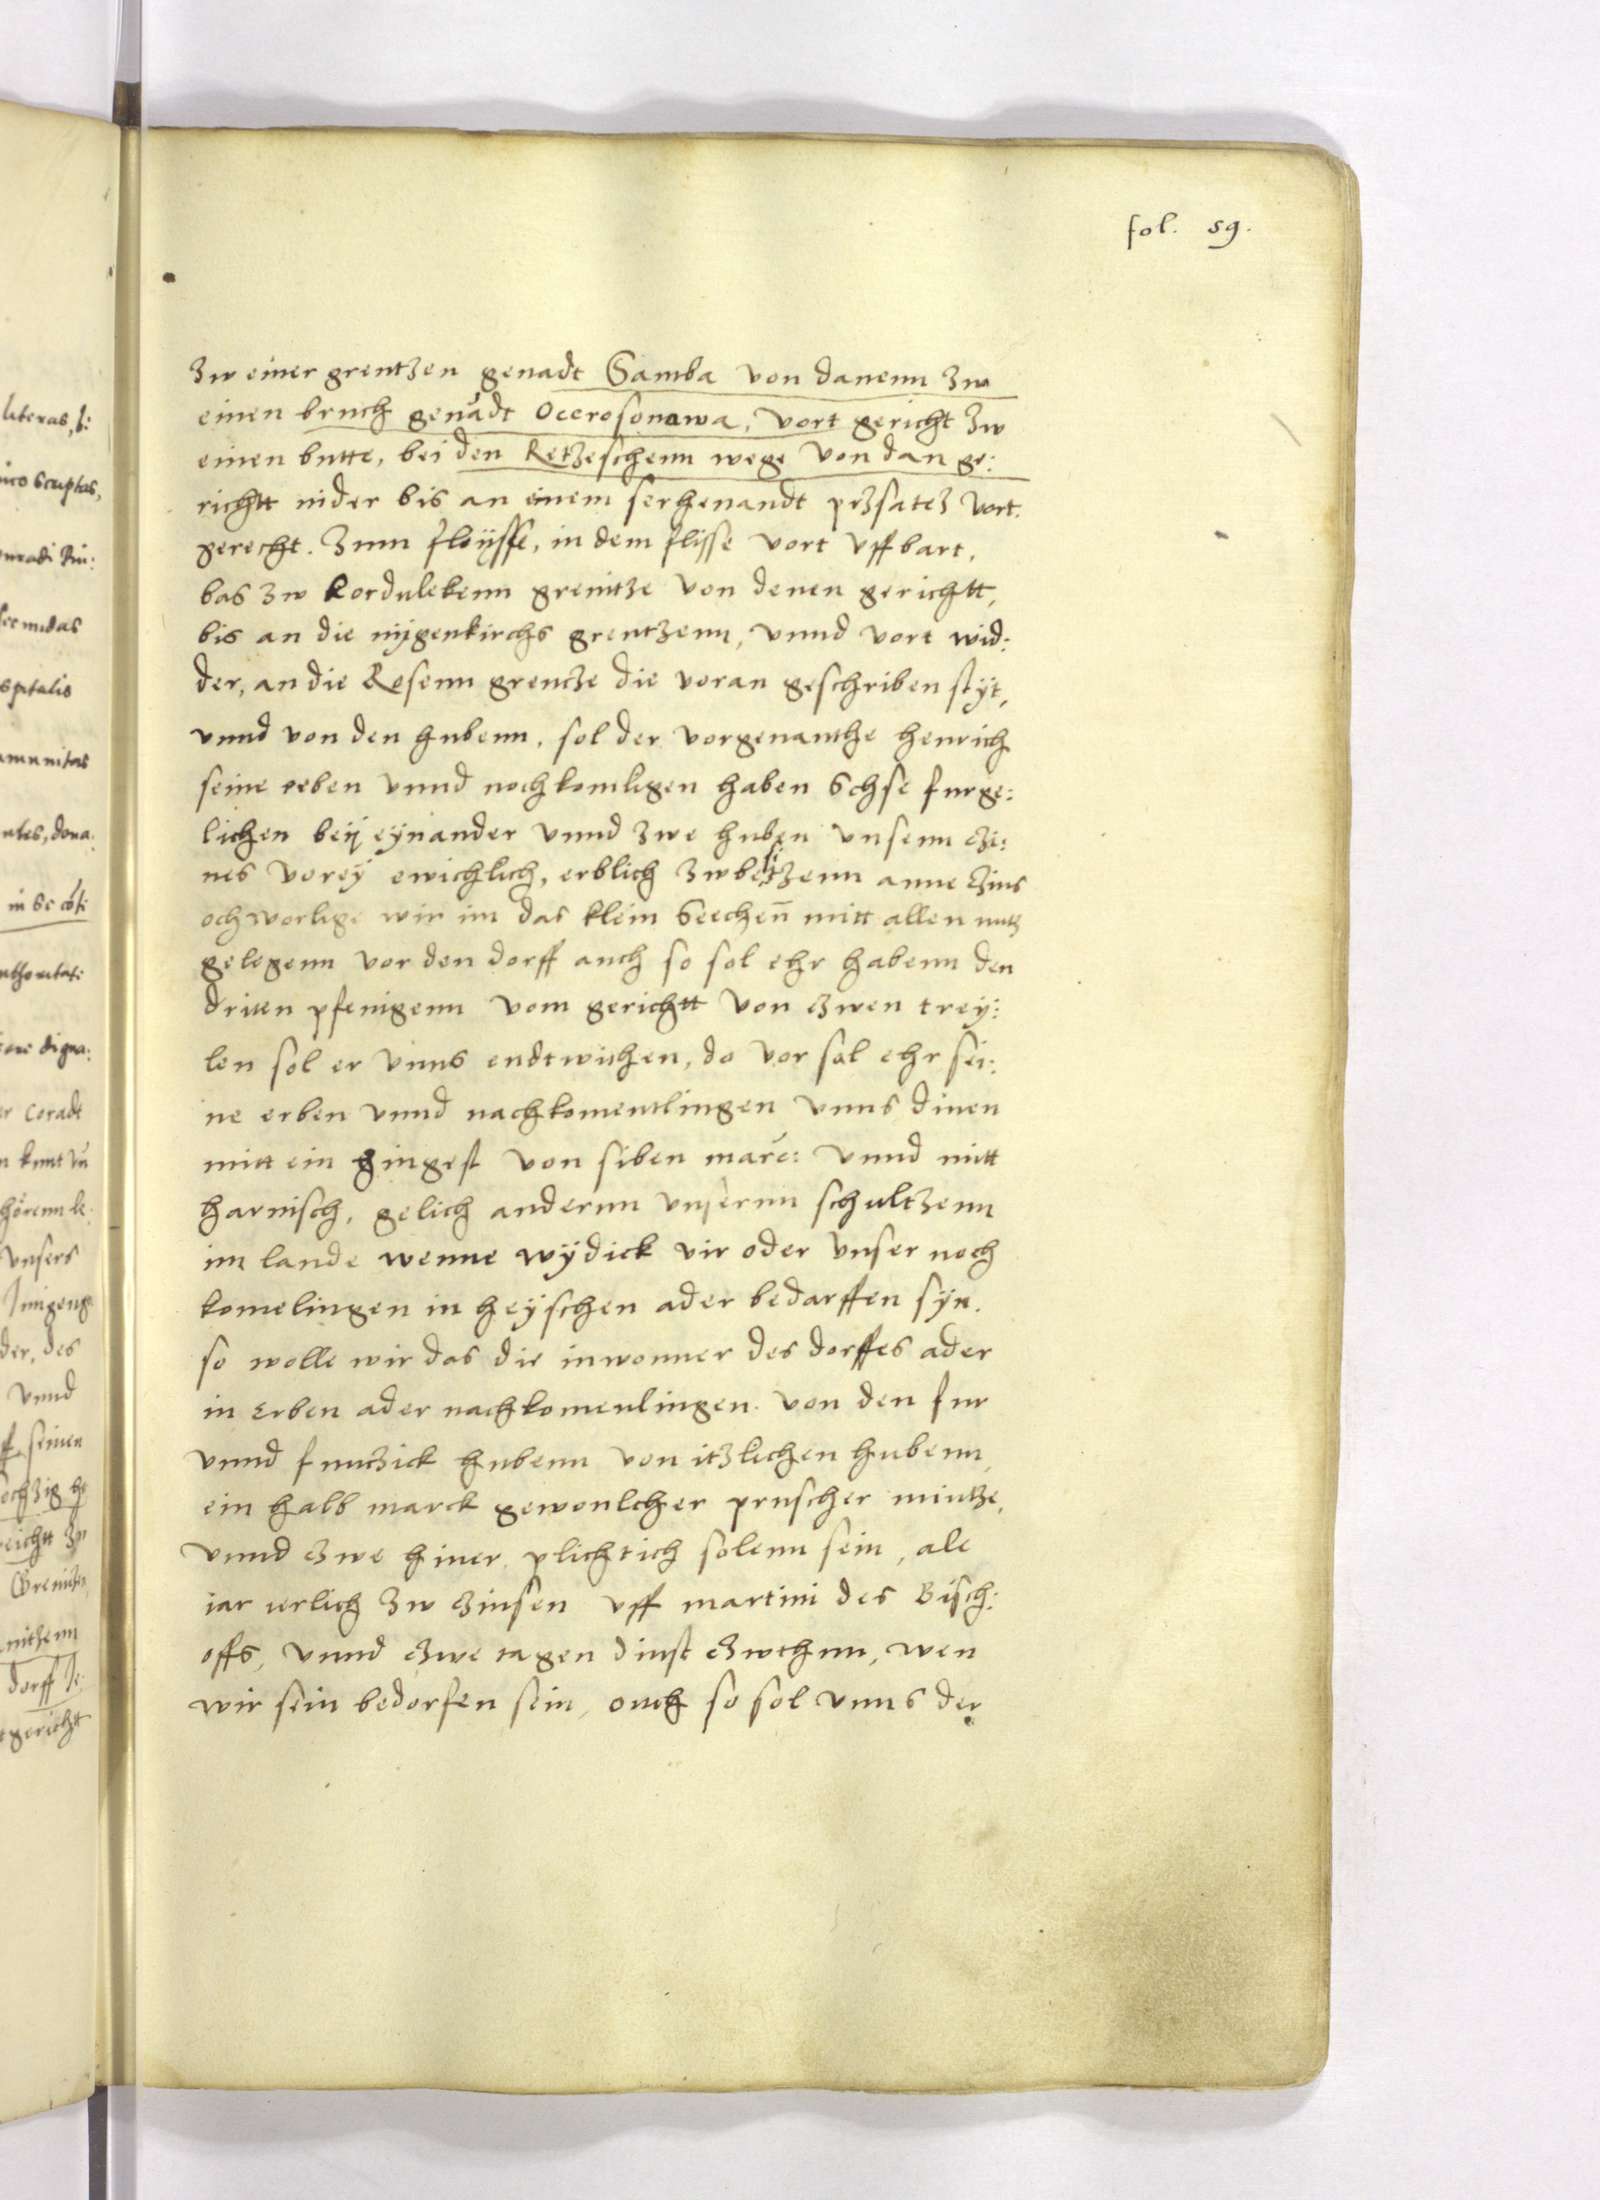 fol. 59.
zw einer grentzen genadt Samba von danenn zw
einen bruch genādt Ocerosonawa, vort gericht zw
einen butte, bei den Retzeschenn wege von dan ge:
richtt nider bis an einem ferhenandt przsatez vort.
gerecht. zum floÿsse, in dem flisse vort vffbart,
bas zw Kordulekenn grenitze von denen gerichtt,
bis an die nÿgenkirchs grentzenn, vnnd vort wid:
der, an die Rosenn grencze die voran geschriben stÿt,
vnnd von den hubenn, sol der vorgenanthe henrich
seine erben vnnd nochkomligen haben schse furge:
lichen beÿ eÿnander vnnd zwe huben vnsenn czi:
nes voreÿ ewichlich, erblich zwbesitzenn anne czins
och vorlige wir im das klein seechen̄ mitt allen nutz
gelegenn vor den dorff auch so sol ehr habenn den
driten pfenigenn vom gerichtt von czwen trey:
len sol er vnns endtwichen, do vor sal ehr sei:
ne erben vnnd nachkomentlingen vnns dinen
mitt ein hingest von siben marc: vnnd mitt
harnisch, gelich andernn vnsernn schultzenn
im lande wenne wÿdick vir oder vnser noch
komelingen in heÿschen ader bedarffen sÿn.
so wolle wir das die inwonner des dorffes ader
in erben ader nachkomenlingen. von den fur
vnnd funczick hubenn von itzlichen hubenn,
ein halb marck gewonlcher pruscher mintze,
vnnd czwe hiner plichtich solenn sein, ale
iar ierlich zw czinsen vff martini des Bisch:
offs, vnnd czwe tagen dinst czwthun, wen
wir sein bedorfen sein, ouch so sol vnns der